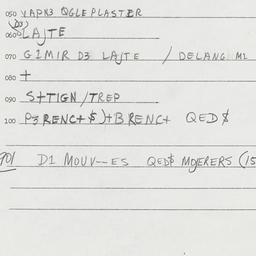 050 VAPN3 QGLEPLASTER
060 LAJTE
070 GIMIR D3 LAJTE / DELANG M2
080 +
090 S+TIGN/TREP
100 P3RENC+$)+BRENC+ QED$
D1 MOUV--ES QED$ MOJERERS (15